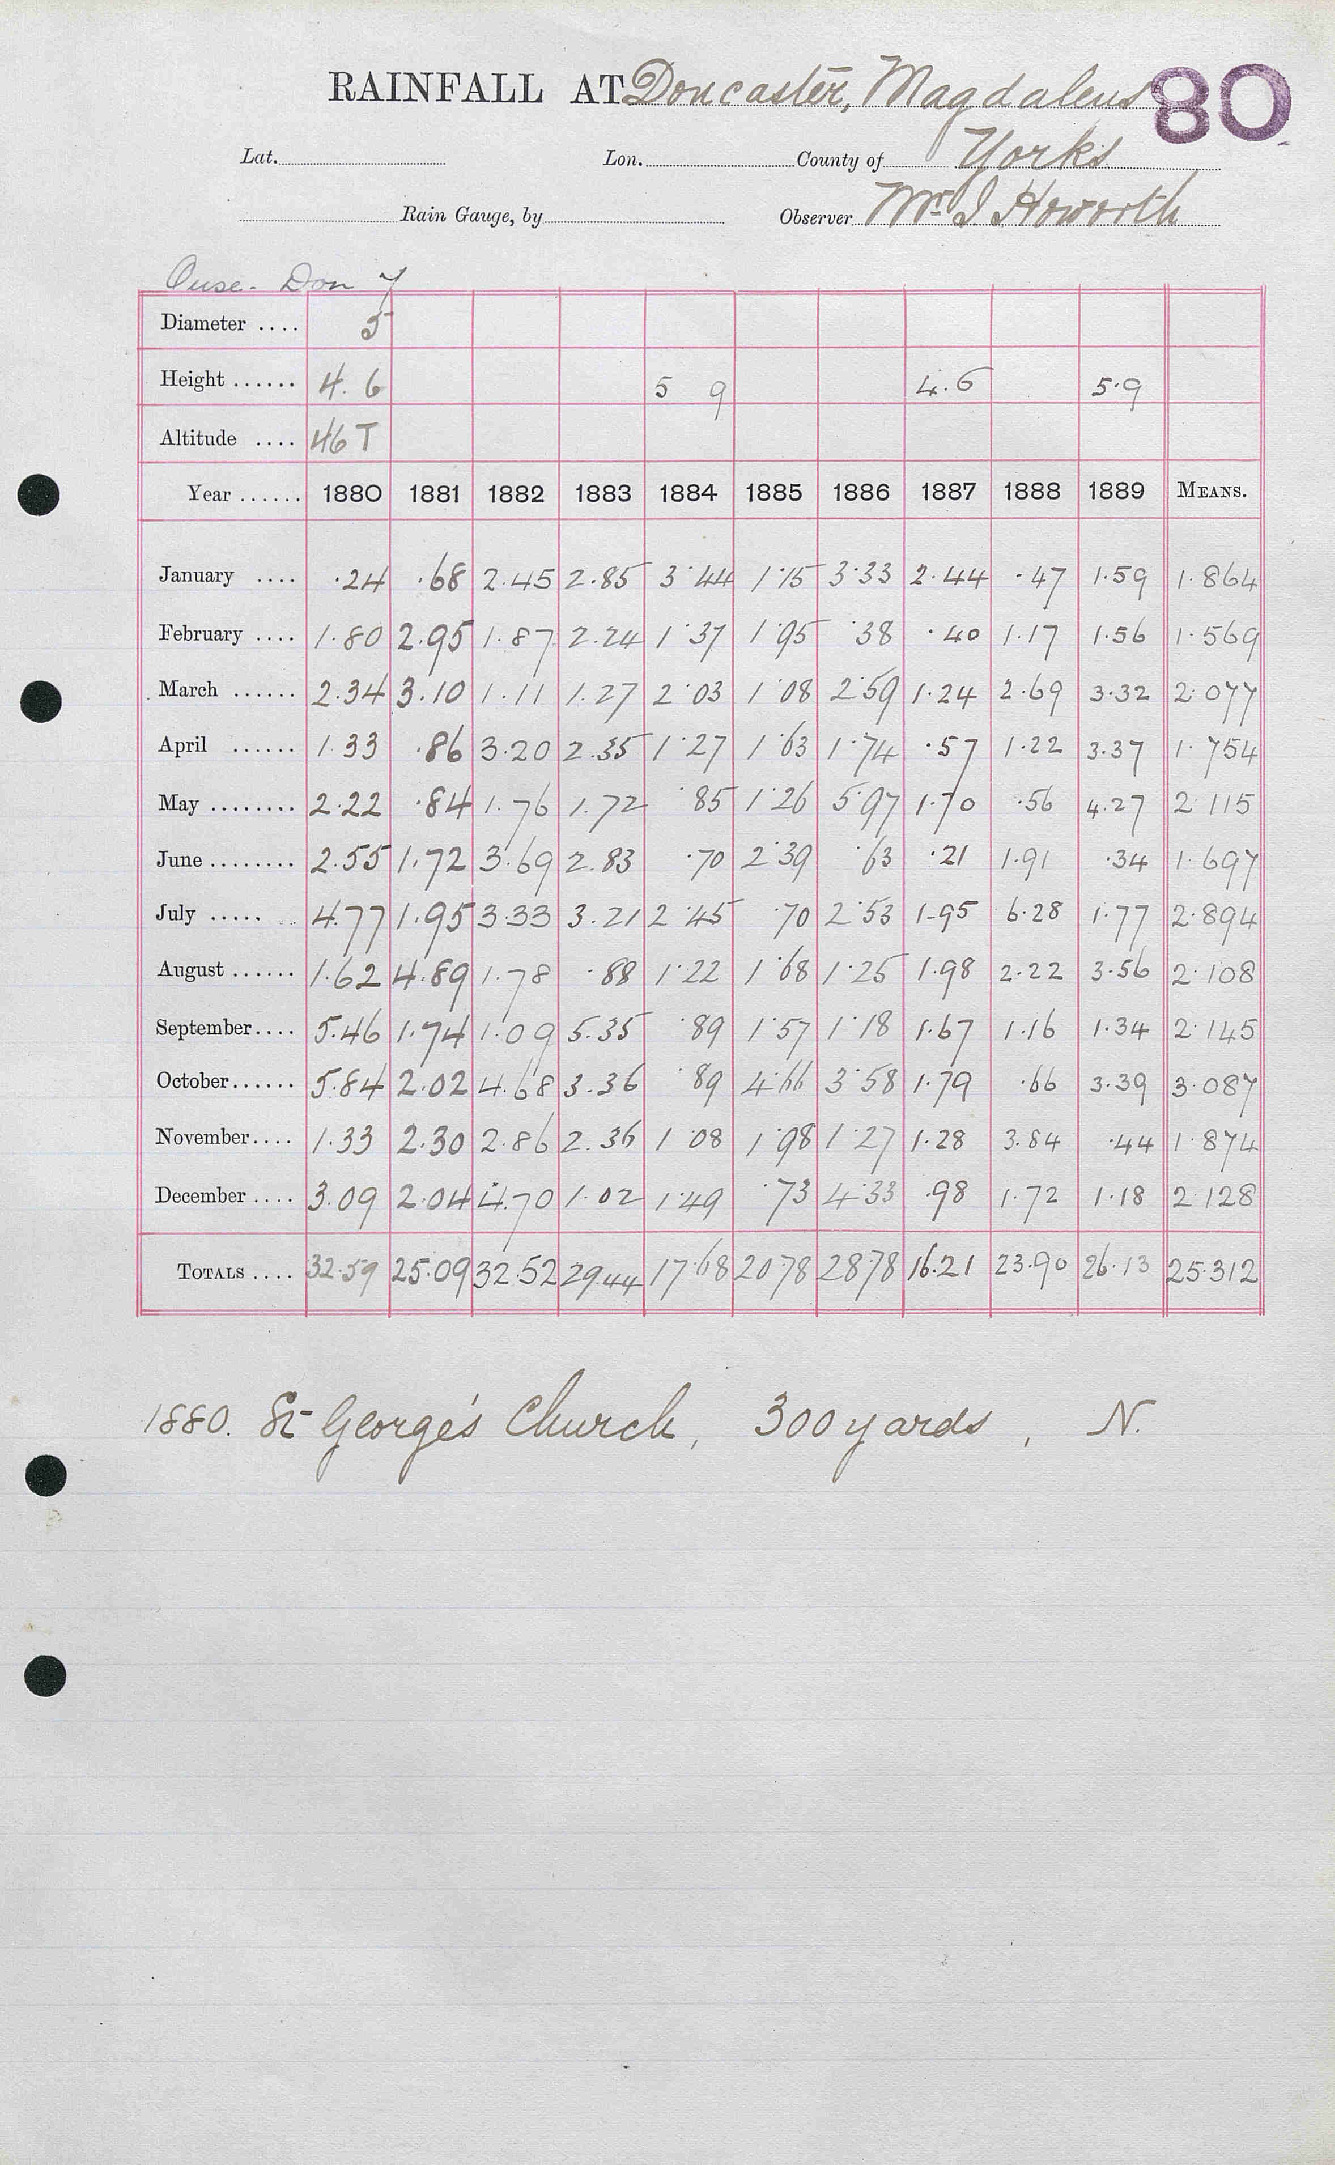 RAINFALL AT Doncaster, Magdalens 80
Lat. Lon. County of Yorks
Rain Gauge, by Observer Mr. J Howorth
Ouse. Don 7
Diameter .... 5
Height ...... 4.6 5 9 4.6 5.9
Altitude .... 46 T
Year ...... 1880 1881 1882 1883 1884 1885 1886 1887 1888 1889 MEANS.
January .... .24 .68 2.45 2.85 3.44 1.15 3.33 2.44 .47 1.59 1.864
February .... 1.80 2.95 1.87 2.24 1.37 1.95 .38 .40 1.17 1.56 1.569
March ...... 2.34 3.10 1.11 1.27 2.03 1.08 2.59 1.24 2.69 3.32 2.077
April ...... 1.33 .86 3.20 2.35 1.27 1.63 1.74 .57 1.22 3.37 1.754
May ........ 2.22 .84 1.76 1.72 .85 1.26 5.97 1.70 .56 4.27 2.115
June ........ 2.55 1.72 3.69 2.83 .70 2.39 .63 .21 1.91 .34 1.697
July ..... .. 4.77 1.95 3.33 3.21 2.45 .70 2.53 1.95 6.28 1.77 2.894
August ...... 1.62 4.89 1.78 .88 1.22 1.68 1.25 1.98 2.22 3.56 2.108
September.... 5.46 1.74 1.09 5.35 .89 1.57 1.18 1.67 1.16 1.34 2.145
October...... 5.84 2.02 4.68 3.36 .89 4.66 3.58 1.79 .66 3.39 3.087
November.... 1.33 2.30 2.86 2.36 1.08 1.98 1.27 1.28 3.84 .44 1.874
December .... 3.09 2.04 4.70 1.02 1.49 .73 4.33 .98 1.72 1.18 2.128
TOTALS .... 32.59 25.09 32.52 29.44 17.68 20.78 28.78 16.21 23.90 26.13 25.312
1880. St George's Church, 300 yards, N.